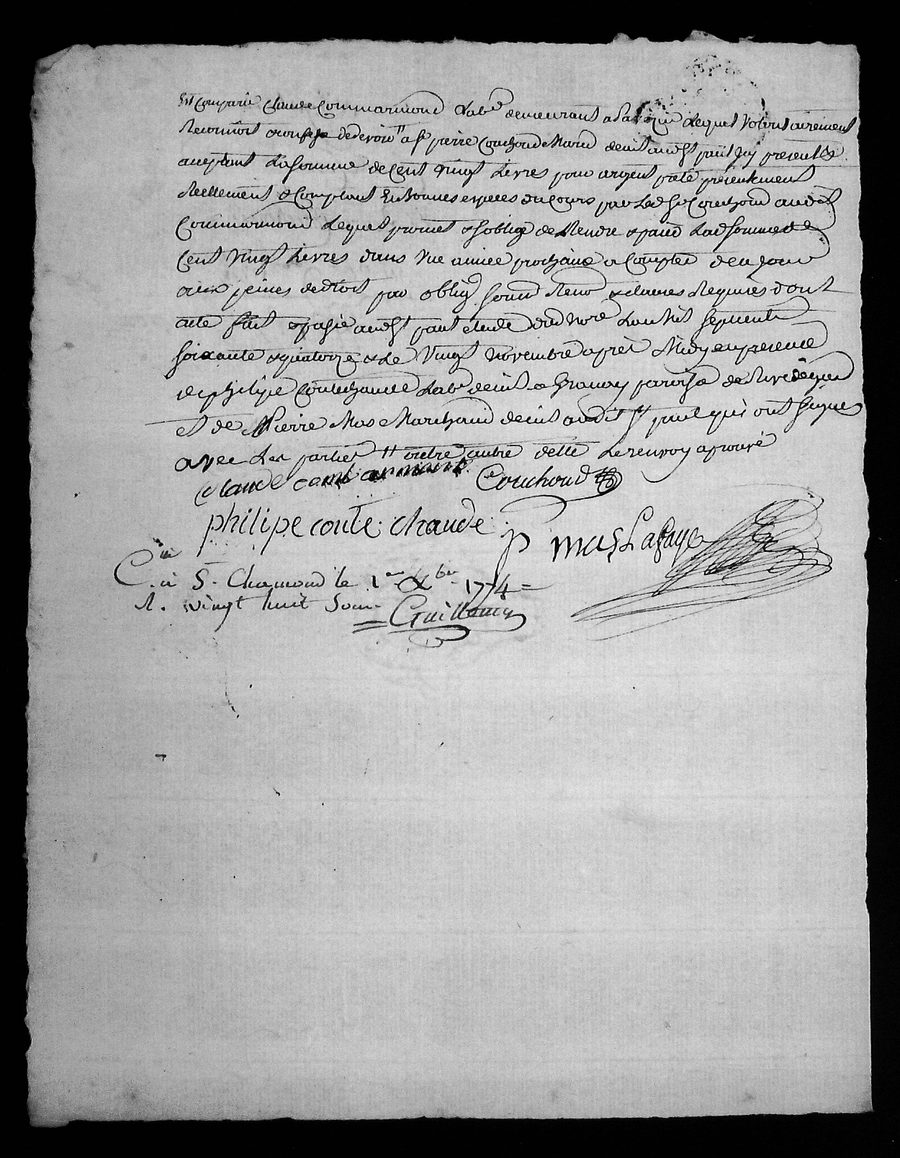 Est Comparû Claude Commarmond Lab.r demeurant a la lequel volontairement
Reconnoit devoir " a S.r pierre Couchoud March.d demt aud. St paul jcy present &
acceptant La somme de Cent vingt Livres pour argent prêté présentement
Reellement & Comptant En bonnes especes du Cours par Led. Sr Couchoud aud.
Commarmond Lequel promet & s'oblige de Rendre & paier Lad. somme de
Cent Vingt Livres dans une année prochaine a Compter de ce jour
aux peines de droit par oblig. soum. Ren. & clauses Requises dont
acte fait & passé aud. St paul étude du Nore. L'an Mil septcent
soixante & quatorze & Le Vingt Novembre après Midy en presence
de philipe Coutechaude Lab.r demt a paroisse de
et de Pierre Mas Marchand demt aud. St paul qui ont signé
avec Les parties " outre autre dette Le renvoy aprouvé
Claude Commarmont Couchoud
philipe coute chaude p mas Lafaye
C.lé à St. Chamond le 1er Xbre 1774
R. vingt huit sous Guillemin